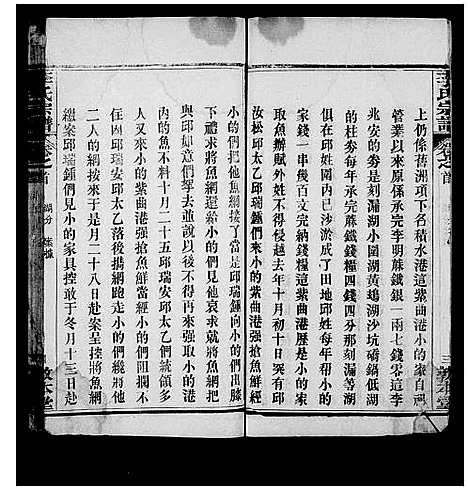 上仍係舊洲項下名積水港這紫曲港小的家自祖
管業以來原係承完李明蔴鐵銀一兩七錢零這李
兆安的柱券是刻漏湖小園湖黃塢湖沙坑磅鍋低湖
的柱券每年蔴鐵錢糧四錢四分那刻漏等湖
俱在邱姓園內已沙淤成了田地邱姓每年幫小的
家錢一串幾百文完納錢糧這紫曲港歷是小的家
取魚辦賦外姓不得侵越去年十月初十日突有邱
汝松邱太乙邱瑞鍾們來小的紫曲港強罾魚鮮經
小的們把他魚網接了當是邱瑞鍾向小的們出勝
下禮求將魚網還給小的們見他哀求就將魚網把
與邱如意們拏去並說以後不得再來强取小的港
內的魚不料十二月二十五邱瑞安邱太乙們統領多
人又來小的紫曲港强搶魚鮮當經小的們阻攔不
住因邱瑞安邱太乙落後搊網跑走小的們纔將他
二人的網按來于是月二十八日赴案呈接將魚網
繳案邱瑞鍾們見小的家具控敢于冬月十三日赴
李氏宗譜
卷之首